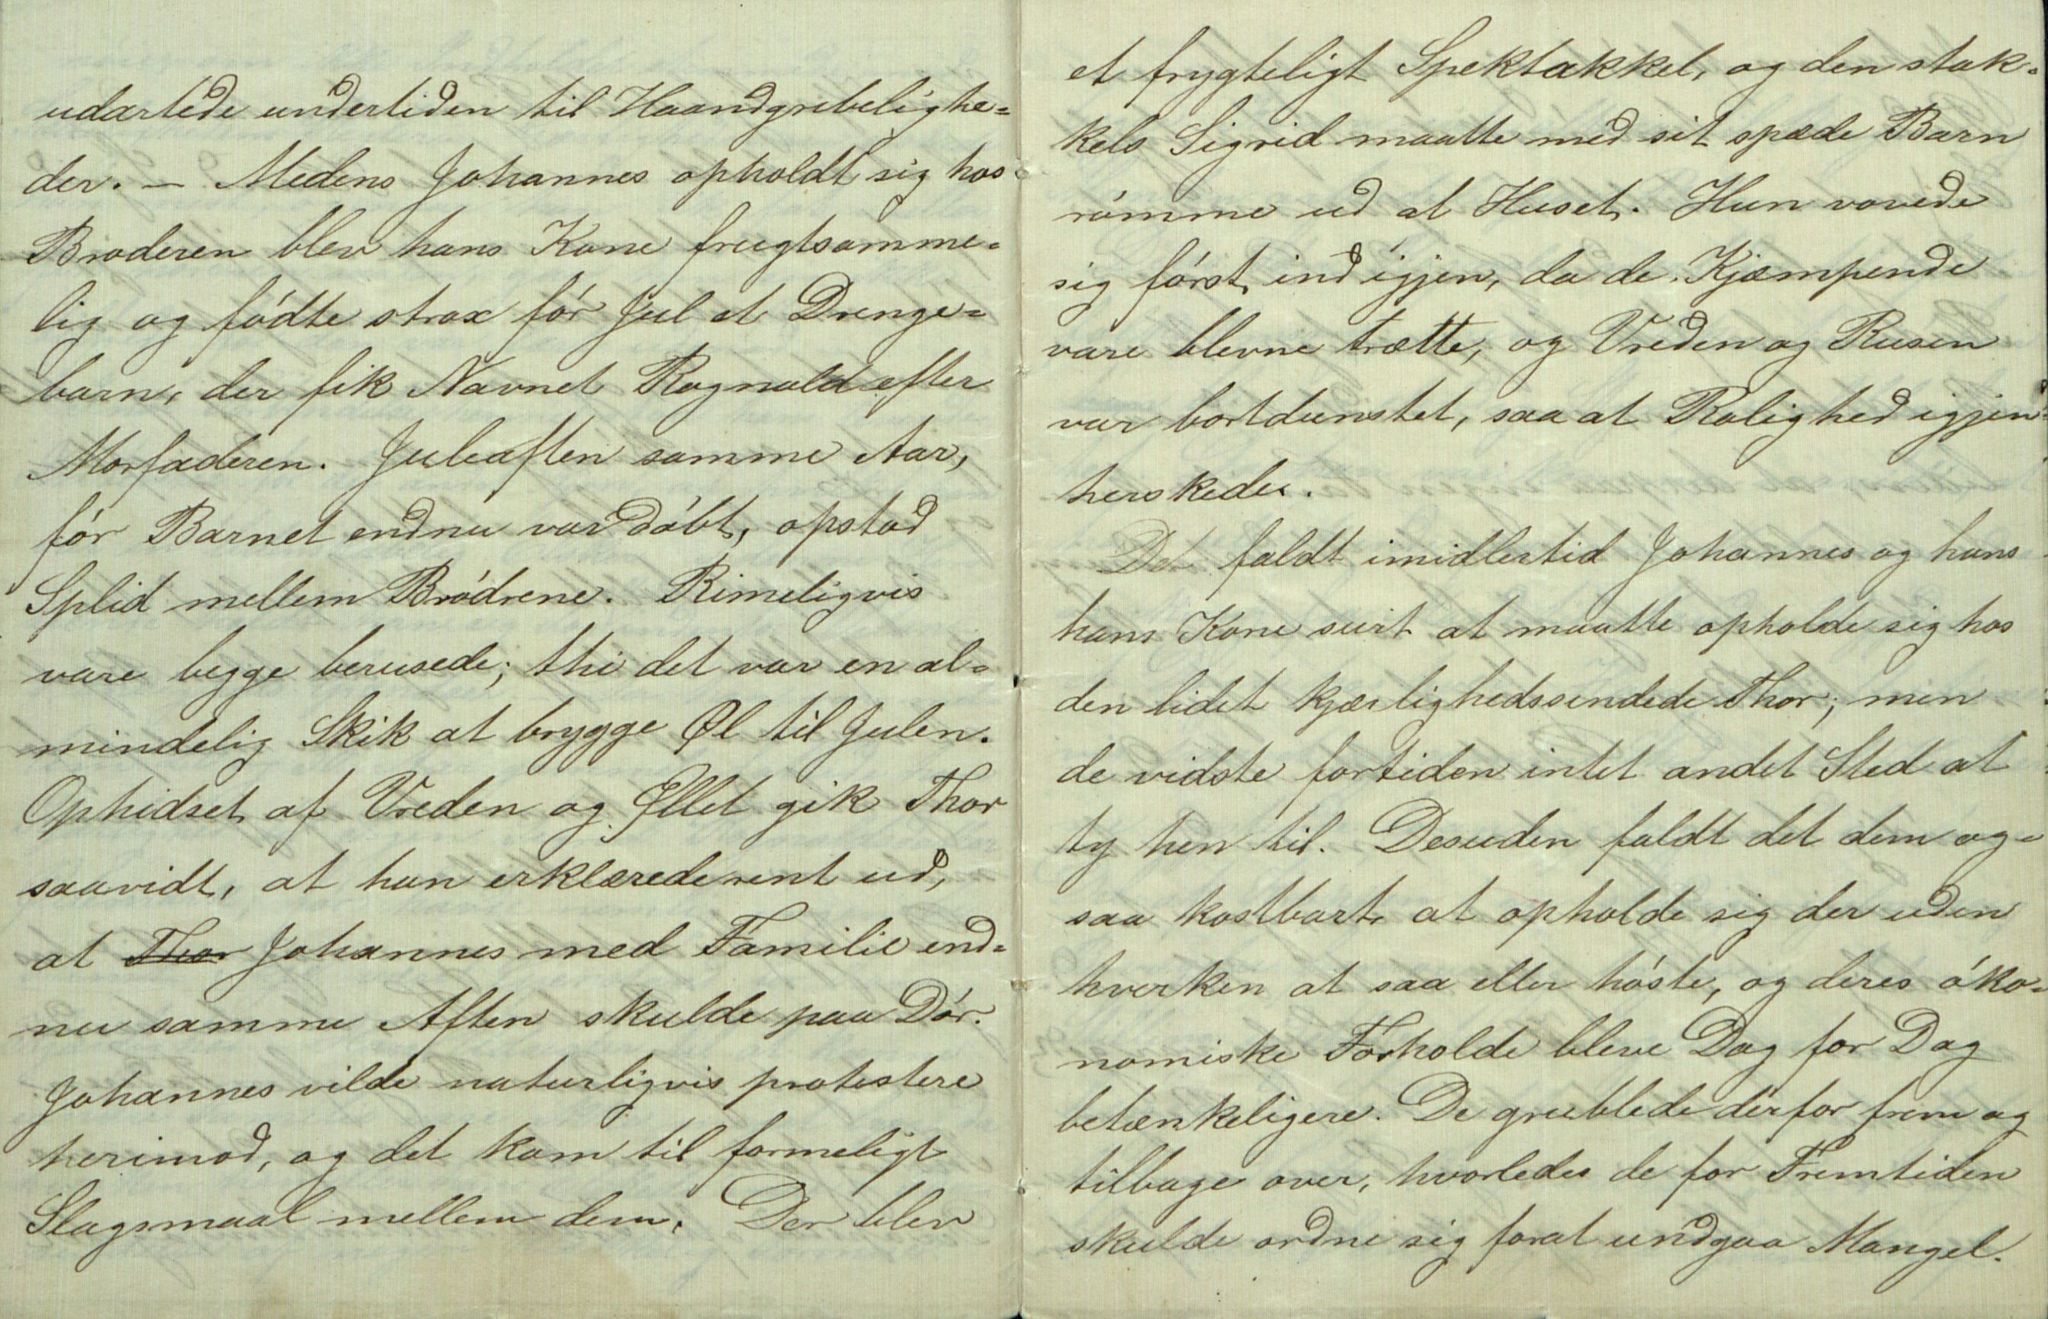 udartede undertiden til Haandgribelighe-
der. — Medens Johannes opholdt sig hos
Broderen blev hans Kone frugtsomme-
lig og fødte strax før Jul et Drenge-
barn, der fik Navnet Ragnald efter
Morfaderen. Juleaften samme Aar,
før Barnet endnu var døbt, opstod
Splid mellem Brødrene. Rimeligvis
vare begge berusede; thi det var en al-
mindelig Skik at brygge Øl til Julen.
Ophidset af Vreden og Øllet gik Thor
saavidt, at han erklærede rent ud,
at Thor Johannes med Familie end-
nu samme Aften skulde paa Dør.
Johannes vilde naturligvis protestere
herimod, og det kom til formeligt
Slagsmaal mellem dem. Der blev
et frygteligt Spektakkel, og den stak-
kels Sigrid maatte med sit spæde Barn
rømme ud at Huset. Hun vovede
sig først ind igjen, da de Kjæmpende
vare blevne trætte, og Vreden og Rusen
var bortdunstet, saa at Rolighed igjen
herskede.
Det faldt imidlertid Johannes og hans
hans Kone surt at maatte opholde sig hos
den lidet kjærlighedssindede Thor; men
de vidste fortiden intet andet Sted at
ty hen til. Desuden faldt det dem og-
saa kostbart at opholde sig der uden
hverken at saa eller høste, og deres øko-
nomiske Forholde bleve Dag for Dag
betænkeligere. De grublede derfor frem og
tilbage over, hvorledes de for Fremtiden
skulde ordne sig forat undgaa Mangel.